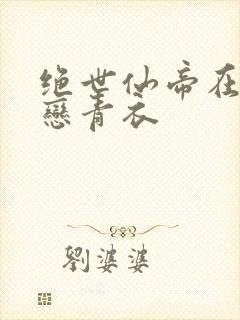 绝世仙帝在
恋青衣
劉婆婆